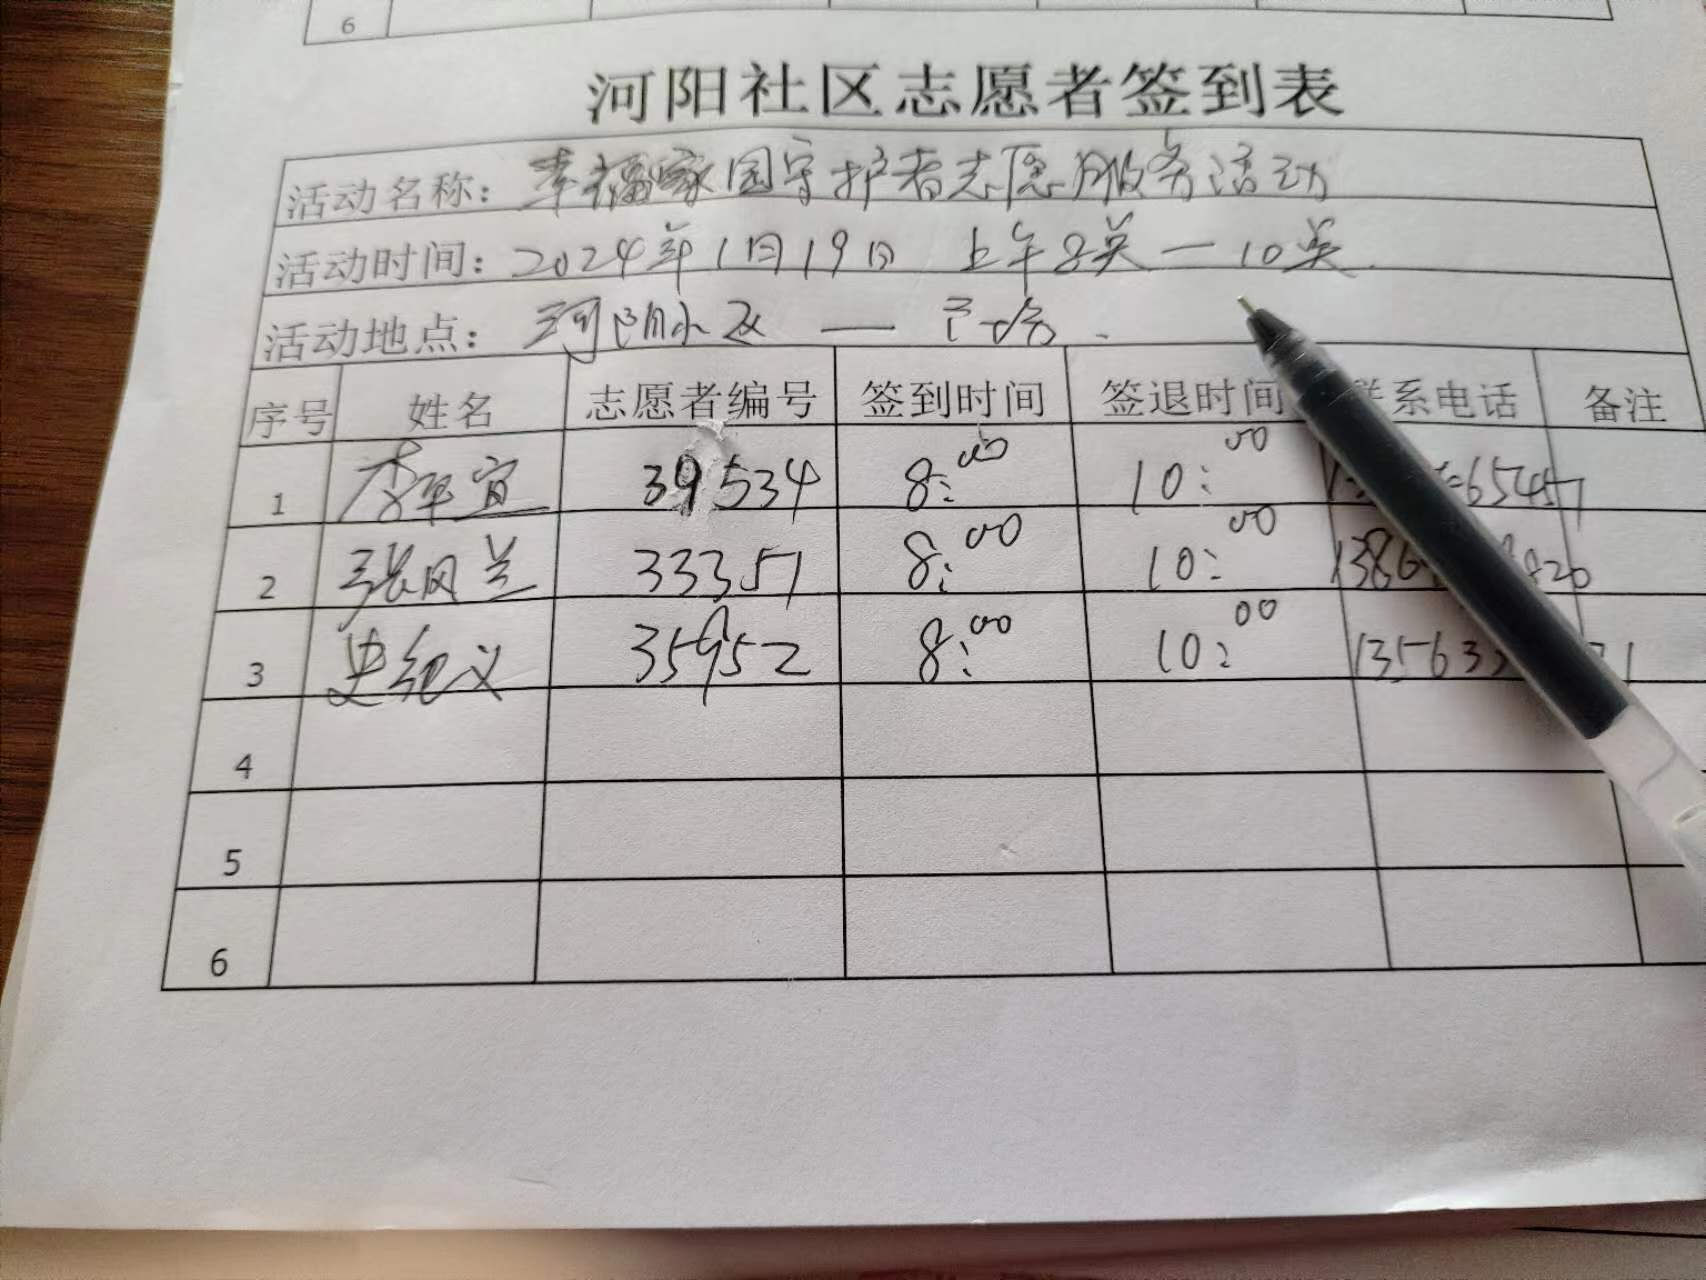 6
河阳社区志愿者签到表
活动名称: 幸福家园守护者志愿服务活动
活动时间: 2024年1月19日 上午8点—10点
活动地点: 河阳小区 —
序号 姓名 志愿者编号 签到时间 签退时间 联系电话 备注
1 李平宜 39534 8:00 10:00 65457
2 张风兰 33351 8:00 10:00 1386 820
3 史纪义 35952 8:00 10:00 13563 71
4
5
6